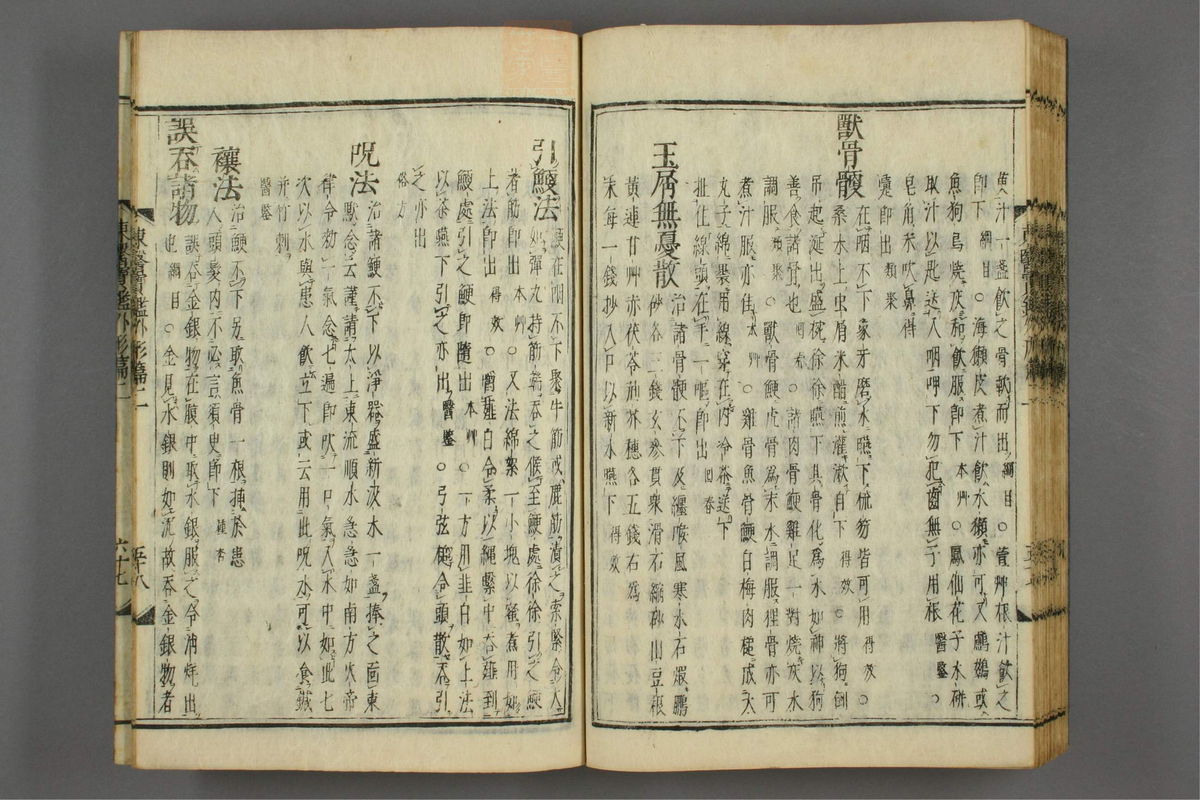 煮汁一盞飮之骨軟而出綱目○萱艸根汁飮之
卽下綱目○海獺皮煮汁飮水獺亦可又鸕鶿或
魚狗烏燒灰和飮服卽下本艸○鳳仙花子水硏
取汁以匙送入咽呷下勿犯齒無子用根醫鑒○
皂角末吹鼻得
嚔卽出類聚
獸骨骾
在咽不下象牙磨水嚥下梳笏皆可用得效○
桑木上虫屑米醋煎灌漱自下得效○將狗倒
吊起涎出盛椀徐徐嚥下其骨化爲水如神以狗
善食諸骨也回春○諸肉骨鯁雞足一對燒灰水
調服類聚○獸骨鯁虎骨爲末水調服狸骨亦可
煮汁服亦佳本艸○雞骨魚骨鯁白梅肉槌成大
丸子綿裹用線穿在內冷茶送下
扯住線頭在手一嘔卽出回春
玉屑無憂散
治諸骨骾不下及纏喉風寒水石煆鵬
砂各三錢玄參貫衆滑石縮砂山豆根
黃連甘艸赤茯苓荊芥穗各五錢右爲
末每一錢抄入口以新水嚥下得效
引鯁法
鯁在咽不下取牛筋或鹿筋漬之索緊令大
如彈丸持筋端吞之候至鯁處徐徐引之鯁
着筋卽出本艸○又法綿絮一小塊以蜜煮用如
上法卽出得效○嚼薤白令柔以繩繫中吞薤到
鯁處引之鯁卽隨出本艸○一方用韭白如上法
以茶嚥下引之亦出醫鑒○弓弦槌令頭散吞引
之亦出
俗方
呪法
治諸鯁不下以淨器盛新汲水一盞捧之面東
默念云謹請太上東流順水急急如南方火帝
律令勅一氣念七遍卽吹一口氣入水中如此七
次以水與患人飮立下或云用此呪水可以食鍼
并竹刺
醫鑒
禳法
治鯁不下另取魚骨一根揷於患
人頭髮內不必言須臾卽下種杏
誤吞諸物
誤吞金銀物在腹中取水銀服之令消烊出
也綱目○金見水銀則如泥故吞金銀物者
東醫寶鑑外形篇二
五十八
六十七